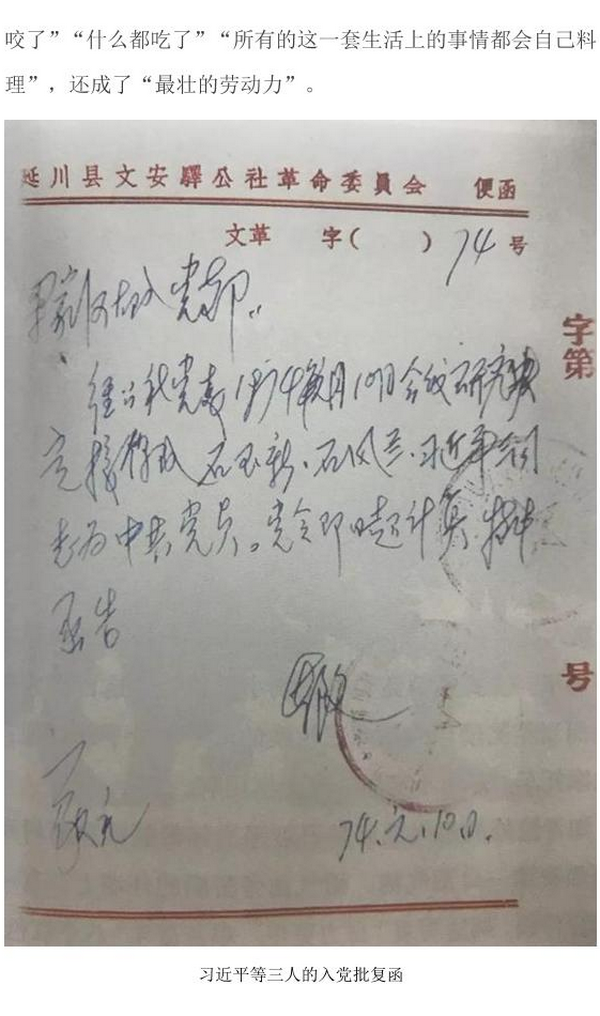 咬了”“什么都吃了”“所有的这一套生活上的事情都会自己料
理”，还成了“最壮的劳动力”。
延川县文安驛公社革命委員会 便函
文革 字( ) 74 号
字第
党
党委 1974年 月10日会议研究决
定接 石玉新、石风兰、习近平三同
志为中共党员。党令即日起计算 特此
函告
号
74.元.10日.
习近平等三人的入党批复函